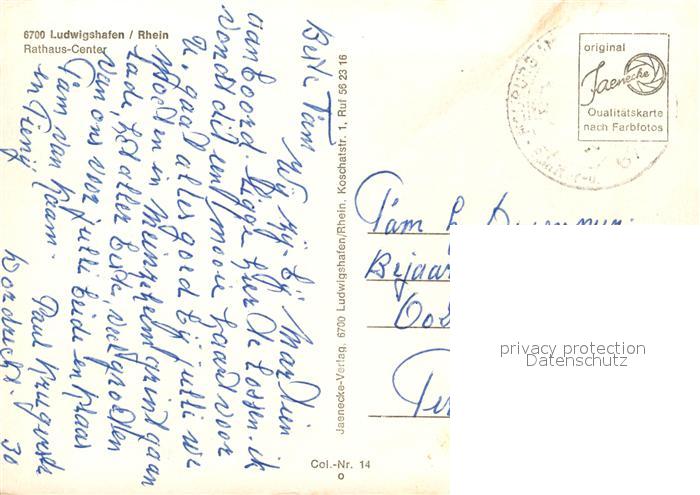 6700 Ludwigshafen / Rhein
Rathaus-Center
Beste Tam
Wij zijn bij Martien
aan boord. Ligge hier te lossen. ik
vondt dit een mooie kaart voor
U, gaat alles goed bij jullie we
moeten in Munzheim grint gaan
lade, het aller beste, veel groeten
van ons voor jullie beide en Klaas
Tam van Raam.
en Tieny
Paul Krugerstr
Dordrecht. 30
Jaenecke-Verlag, 6700 Ludwigshafen/Rhein, Koschatstr. 1, Ruf 56 23 16
Col.-Nr. 14
original
Jaenecke
Qualitätskarte
nach Farbfotos
Tam
Bijaar
Oos
privacy protection
Datenschutz